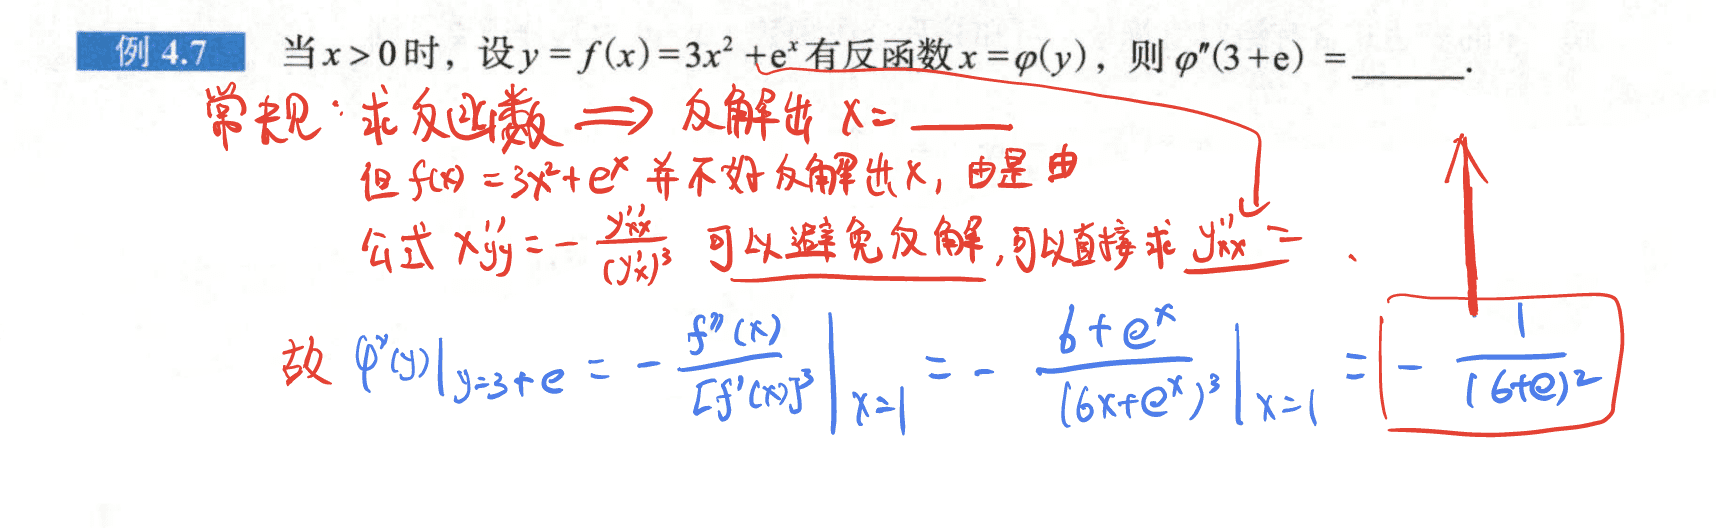 例 4.7 当 x > 0 时，设 y = f(x) = 3x² + eˣ 有反函数 x = φ(y)，则 φ″(3+e) = ______.
常规：求反函数 ⟹ 反解出 x = ____
但 f(x) = 3x² + eˣ 并不好反解出 x, 由是由
公式 x″yy = - y″xx / (y′x)³ 可以避免反解, 可以直接求 y″xx = .
故 φ″(y)|y=3+e = - f″(x) / [f′(x)]³ |x=1 = - (6+eˣ) / (6x+eˣ)³ |x=1 = - 1 / (6+e)²